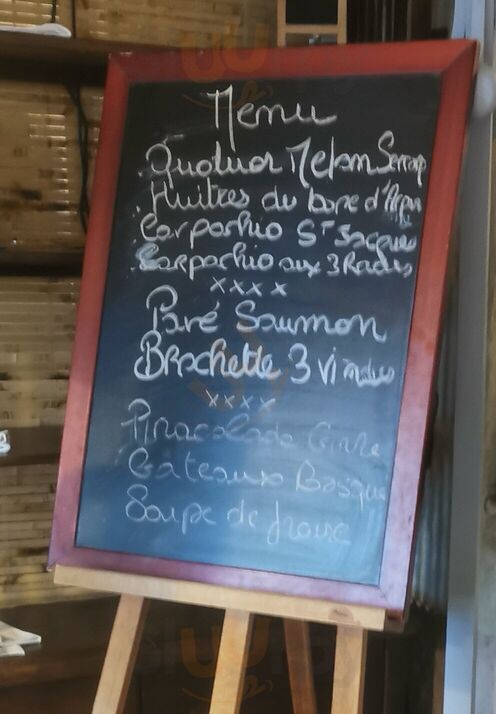 Menu
. Quatuor Melon Serrano
. Huitres du banc d'Arguin
. Carpachio St Jacques
. Carpachio aux 3 Radis
xxxx
Pavé Saumon
Brochette 3 Viandes
xxxx
Pinacolada
Gateaux Basque
Soupe de fraise